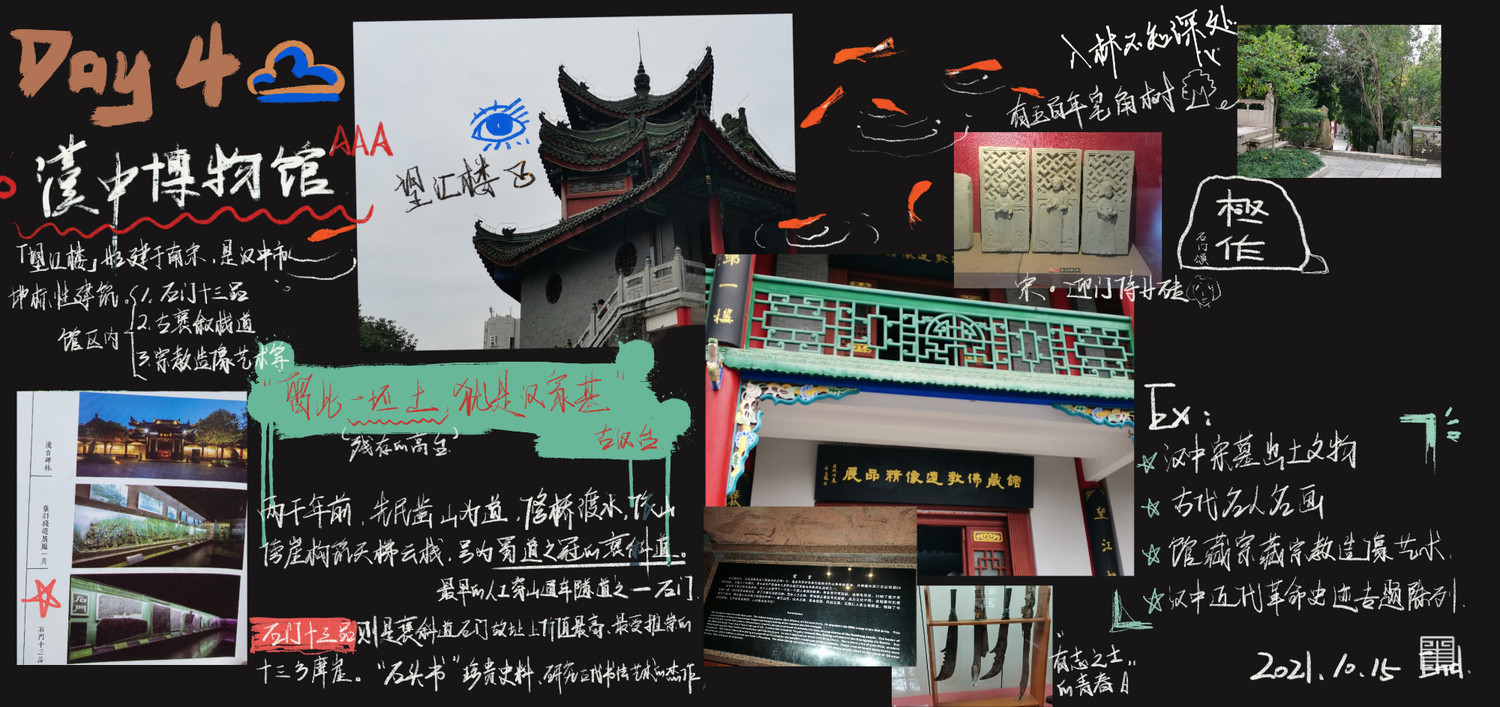 Day 4
漢中博物馆
AAA
「望江楼」始建于南宋，是汉中市
地标性建筑.
馆区内
1. 石门十三品
2. 古褒斜栈道
3. 宗教造像艺术等
望江楼
入林不知深处
有五百年皂角树
宋·迎门侍女砖
極作
石门頌
第一樓
館藏佛教造像精品展
望江
"留此一坯土，犹是汉家基"
古汉台
(残存的高台)
两千年前，先民凿山为道，修桥渡水，依山
傍崖构筑天梯云栈，号为蜀道之冠的褒斜道。
最早的人工穿山通车隧道之一 石门.
石门十三品则是褒斜道石门故址上价值最高、最受推崇的
十三方摩崖。"石头书"珍贵史料、研究古代书法艺术的杰作.
漢台碑林
褒斜棧道展廳一角
石門十三品
石門
"有志之士"
的青春日
Ex:
汉中宗墓出土文物
古代名人名画
馆藏宗藏宗教造像艺术.
汉中近代革命史迹专题陈列.
2021.10.15
End.